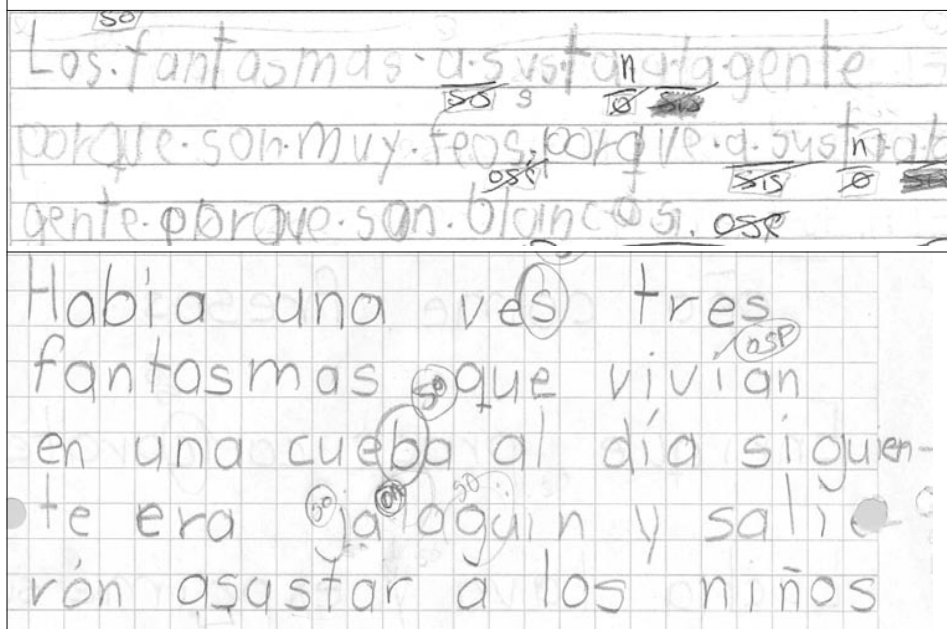 so
Los.fantasmas.a.sustan a.la.gente
so s ø
porque.son.muy.feos.porque.a.sustn.a.la
ose sis ø sis
gente.porque.son.blancos. ose
Había una ves tres
osp
fantasmas que vivian
so
en una cueba al día siguien-
so on so
te era ja oguin y salie
rón asustar a los niños